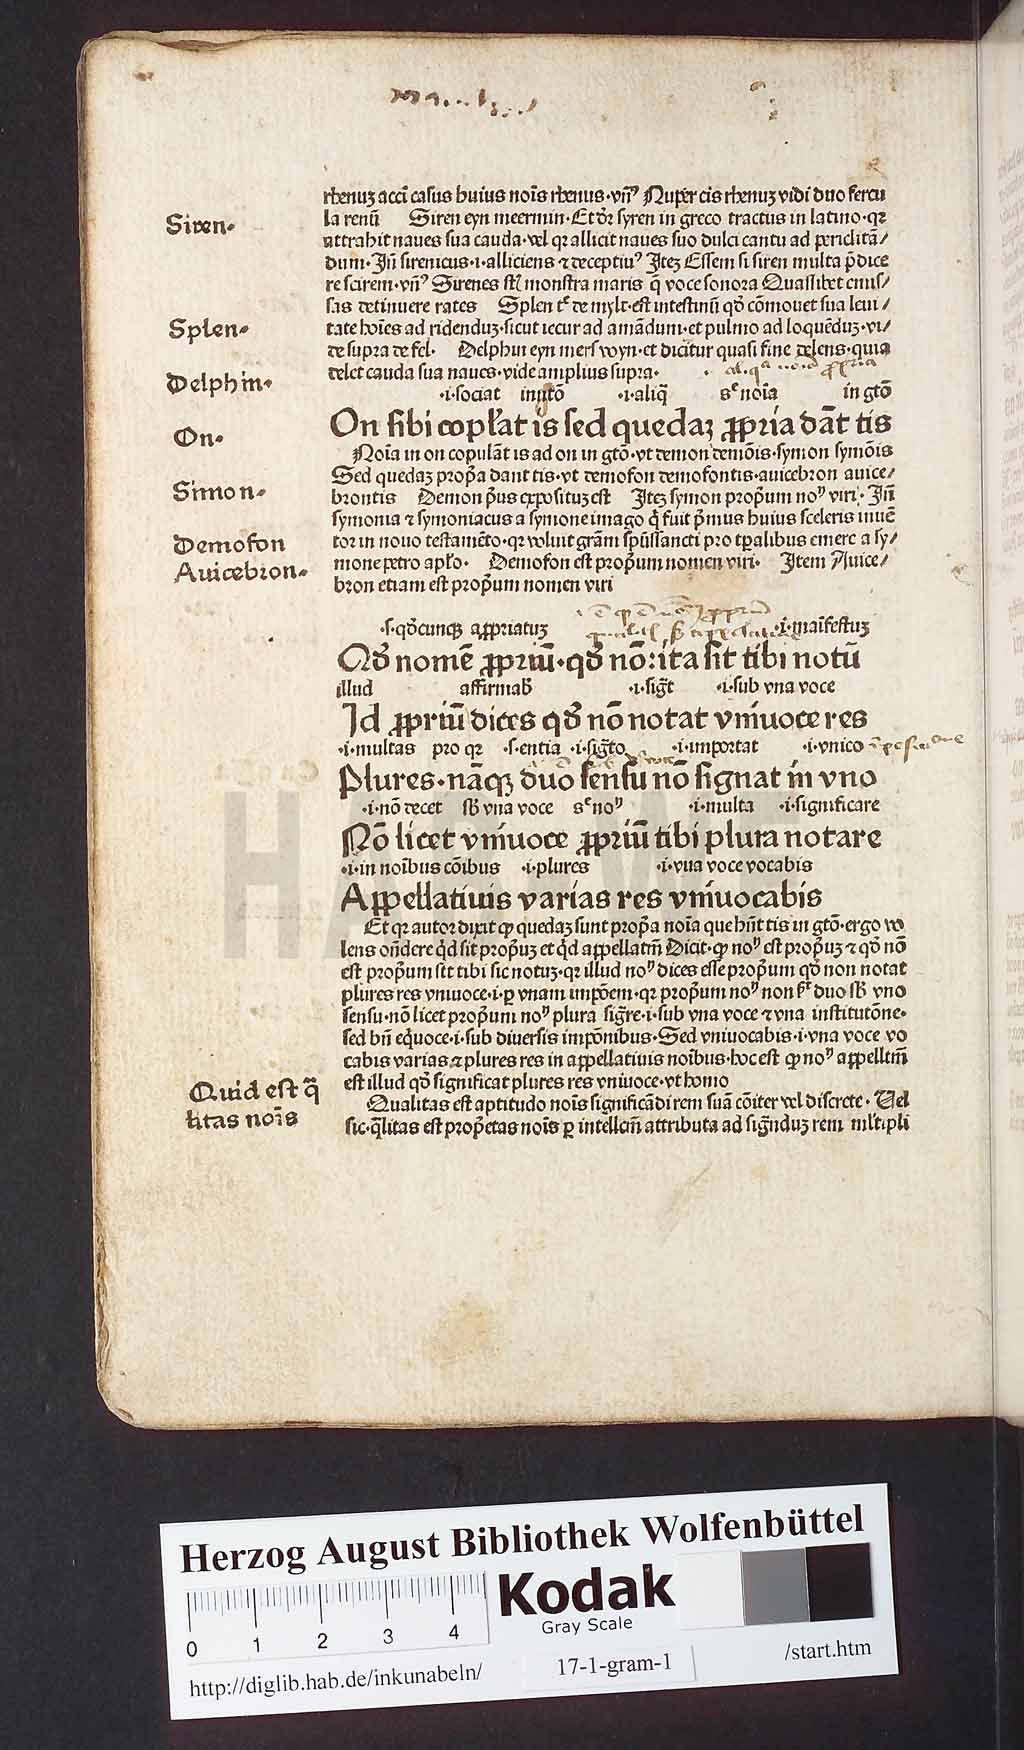 rhenuʒ acci casus huius noīs rhenus·vn̄ꝰ Nuper cis rhenuʒ vidi duo fercu
Siren·
la renū Siren eyn meermin·Et dr̄ syren in greco tractus in latino·qꝛ
attrahit naues sua cauda·vel qꝛ allicit naues suo dulci cantu ad periclitā/
dum·Jn̄ sirenicus·i·alliciens ⁊ deceptiuꝰ Jteʒ Essem si siren multa p̄dice
re scirem·vn̄ꝰ Sirenes st̄ monstra maris q̄ voce sonora Quaslibet cnus/
sas detinuere rates Splen t̄ de mylt·est intestinū qď cōmouet sua leui/
Splen·
tate hoīes ad ridenduʒ·sicut iecur ad amādum·et pulmo ad loquēduʒ·vi/
de supra de fel· Delphin eyn mers wyn·et dicitur quasi fine delens·quia
Delphin·
delet cauda sua naues·vide amplius supra·
·i·sociat in gtō ·i·aliq̄ sᶜ noīa in gtō
On·
On sibi copl'at is sed quedaʒ ꝓpria dāt tis
Noīa in on copulāt is ad on in gtō·vt demon demōis·symon symōis
Simon·
Sed quedaʒ prop̄a dant tis·vt demofon demofontis·auicebron auice/
brontis Demon p̄us expositus est Jteʒ symon prop̄um noᵐ viri· Jn̄
symonia ⁊ symoniacus a symone imago q̇ fuit p̄mus huius sceleris inuē
Demofon
tor in nouo testamēto·qꝛ voluit grām sp̄ūssancti pro tp̄alibus emere a sy/
Auicebron·
mone petro apl'o· Demofon est prop̄um nomen viri· Jtem Auice/
bron etiam est prop̄um nomen viri
·s·qďcunqʒ aꝓpriatuʒ ·i·maīfestuʒ
Qď nomē ꝓpriū·qď nō:ita sit tibi notū
illud affirmab̄ ·i·sigt̄ ·i·sub vna voce
Jd ꝓpriū dices qď nō notat vniuoce res
·i·multas pro qꝛ ·s·entia ·i·sigto ·i·importat ·i·vnico
Plures·nāqʒ duo sensu nō signat in vno
·i·nō decet sb̄ vna voce sᶜ noᵐ ·i·multa ·i·significare
Nō licet vniuoce ꝓpriū tibi plura notare
·i·in noībus cōibus ·i·plures ·i·vna voce vocabis
Appellatiuis varias res vniuocabis
Et qꝛ autor dixit ꝙ quedaʒ sunt prop̄a noīa que hn̄t tis in gtō·ergo vo
lens on̄dere q̇d sit prop̄uʒ et q̇d appellatm̄ Dicit·ꝙ noᵐ est prop̄uʒ ⁊ qď nō
est prop̄um sit tibi sic notuʒ·qꝛ illud noᵐ dices esse prop̄um qď non notat
plures res vniuoce·i·ꝑ vnam impōem·qꝛ prop̄um noᵐ non st̄ duo sb̄ vno
sensu·nō licet prop̄um noᵐ plura sigr̄e·i·sub vna voce ⁊ vna institutōne·
sed bn̄ eq̇uoce·i·sub diuersis impōnibus·Sed vniuocabis·i·vna voce vo
cabis varias ⁊ plures res in appellatiuis noībus·hoc est ꝙ noᵐ appelltm̄
est illud qď significat plures res vniuoce·vt homo
Quid est q̄
litas noīs
Qualitas est aptitudo noīs significādi rem suā cōiter vel discrete· Vel
sic·q̄litas est prop̄etas noīs ꝑ intellcm̄ attributa ad sign̄duʒ rem ml'tipli
Herzog August Bibliothek Wolfenbüttel
Kodak
Gray Scale
0 1 2 3 4
http://diglib.hab.de/inkunabeln/
17-1-gram-1
/start.htm